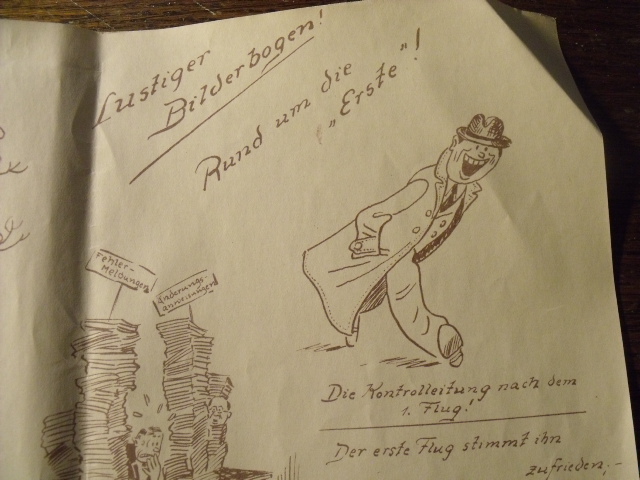 Lustiger
Bilderbogen!
Rund um die
„Erste"!
Fehler-
Meldungen
Änderungs
anweisungen
Die Kontrolleitung nach dem
1. Flug!
Der erste Flug stimmt ihn
zufrieden,-